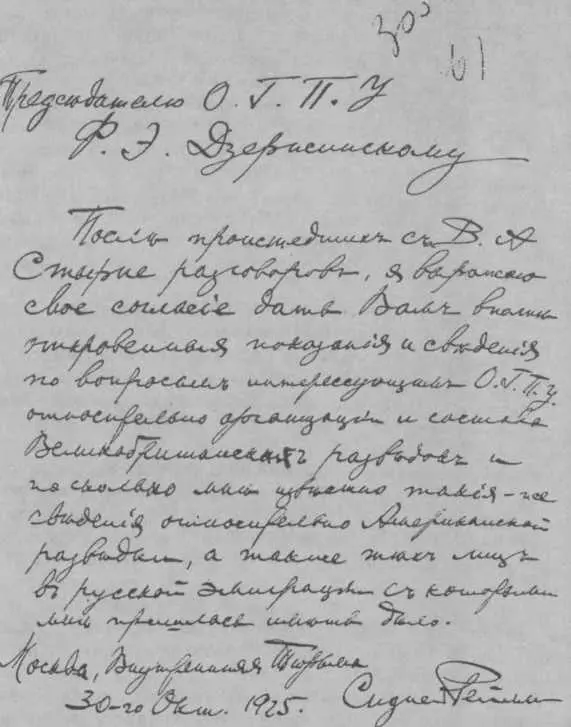 303
61
Председателю О. Г. П. У
Ф. Э. Дзержинскому
После происшедшихъ съ В. А
Стырне разговоровъ, я выражаю
свое согласіе дать Вамъ вполнѣ
откровенныя показанія и свѣдѣнія
по вопросамъ интересующимъ О.Г.П.У.
относительно организаціи и состава
Великобританскихъ развѣдокъ и
по сколько мнѣ извѣстно такія-же
свѣдѣнія относительно Американской
развѣдки, а также тѣхъ лицъ
въ русской эмиграціи съ которыми
мнѣ пришлось имѣть дѣло.
Москва, Внутренняя Тюрьма
30-го Окт. 1925. Сидней Рейлли